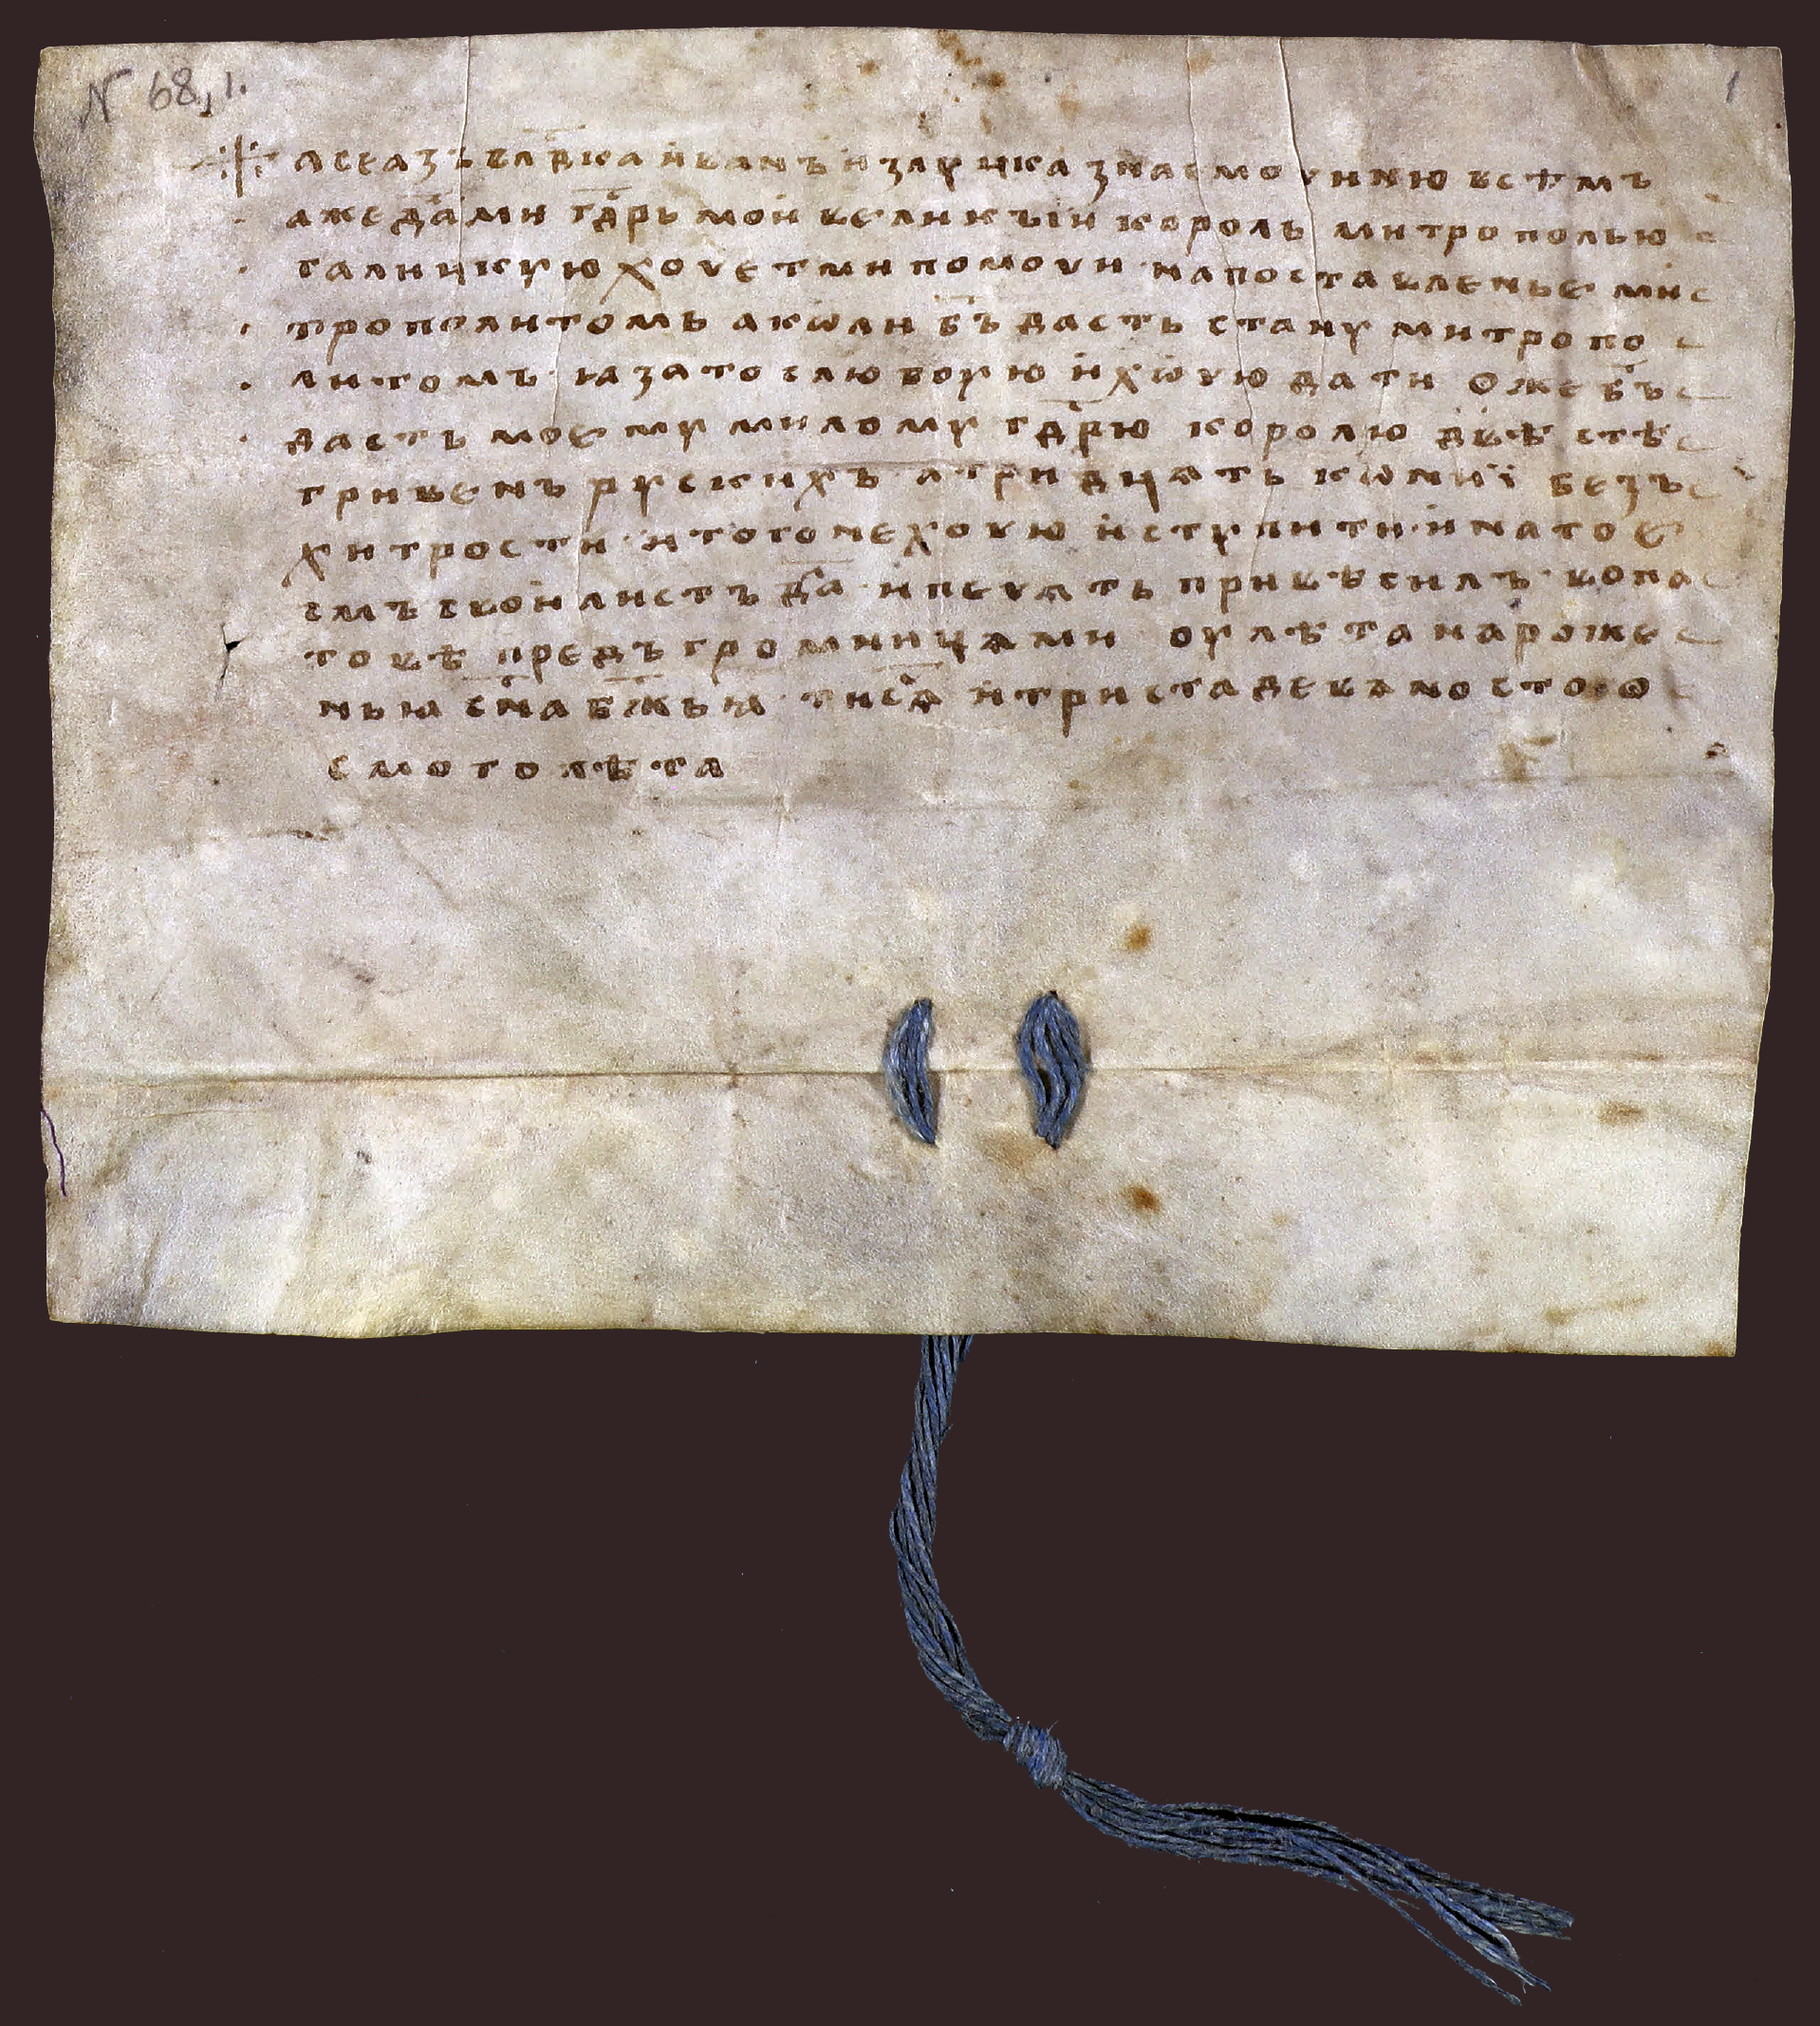 N 68,1.
1
а се азъ влдка иванъ из луцка знаємо чиню всѣмъ
аже да ми гдрь мои великъıи король митрополью
галицкую хочет ми помочи на поставленье ми
трополитомъ а коли бъ дасть стану митропо
литомъ ꙗ за то слюбоую и хочю дати оже бъ
дасть моему милому гдрю королю двѣ стѣ
гривенъ рускихъ а тридцѧть кѡнии безъ
хитрости и того не хочю иступити и на то є
смъ свои листъ да и печѧть привѣсилъ во па
товѣ предъ громницѧми оу лѣта нароже
ньꙗ сна бжьꙗ тисѧ и триста девѧносто ѡ
смого лѣта